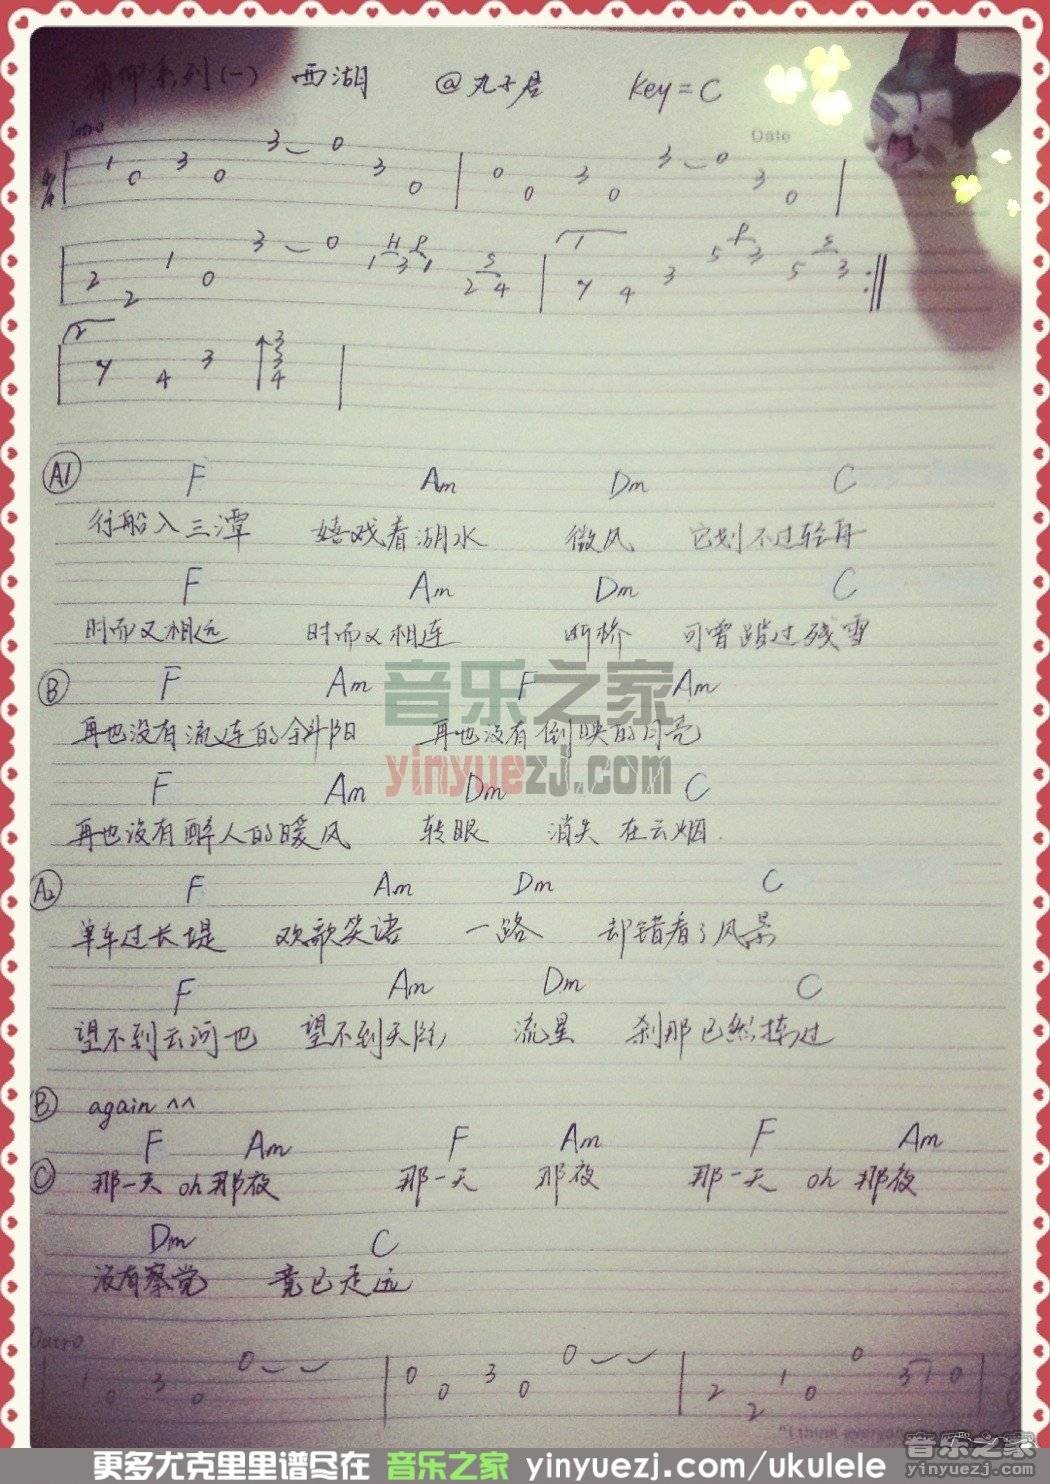 系列(一) 西湖 @丸子君 Key=C
Intro
Date
1 0 3 0 3 0 3 0 0 0 3 0 3 0 3 0
2 2 1 0 3 0 H P 1 3 1 S 2 4 1 7 4 3 P 5 3 S 5 3
2 7 4 3 3 3 3 4
A1 F Am Dm C
行船入三潭 嬉戏着湖水 微风 它划不过轻舟
F Am Dm C
时而又相远 时而又相连 断桥 可曾踏过残雪
B F Am F Am
再也没有流连的斜阳 再也没有倒映的月亮
音乐之家
yinyuezj.com
F Am Dm C
再也没有醉人的暖风 转眼 消失在云烟
A2 F Am Dm C
单车过长堤 欢歌笑语 一路 却错看了风景
F Am Dm C
望不到云河也 望不到天际 流星 刹那已然掠过
B again ^^
F Am F Am F Am
C 那一天 oh 那夜 那一天 那夜 那一天 oh 那夜
Dm C
没有察觉 竟已走远
Outro
1 0 3 0 0 0 0 3 0 0 2 2 1 0 0 3 1 0
"I think every
音乐之家
yinyuezj.com
更多尤克里里谱尽在 音乐之家 yinyuezj.com/ukulele